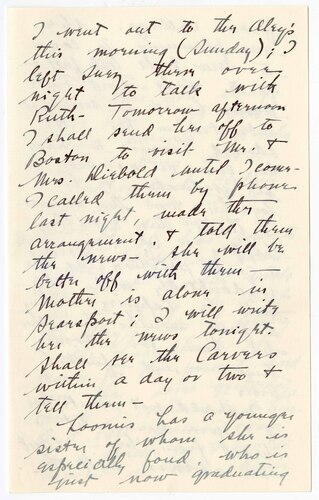 I went out to the Aley's
this morning (Sunday); I
left Suzy there over
night to talk with
Ruth - Tomorrow afternoon
I shall send her off to
Boston to visit Mr. &
Mrs. Diebold until I come -
I called them by phone
last night, made the
arrangement & told them
the news - she will be
better off with them -
Mother is alone in
Searsport; I will write
her the news tonight.
Shall see the Carvers
within a day or two &
tell them -
Loomis has a younger
sister of whom she is
especially fond, who is
just now graduating